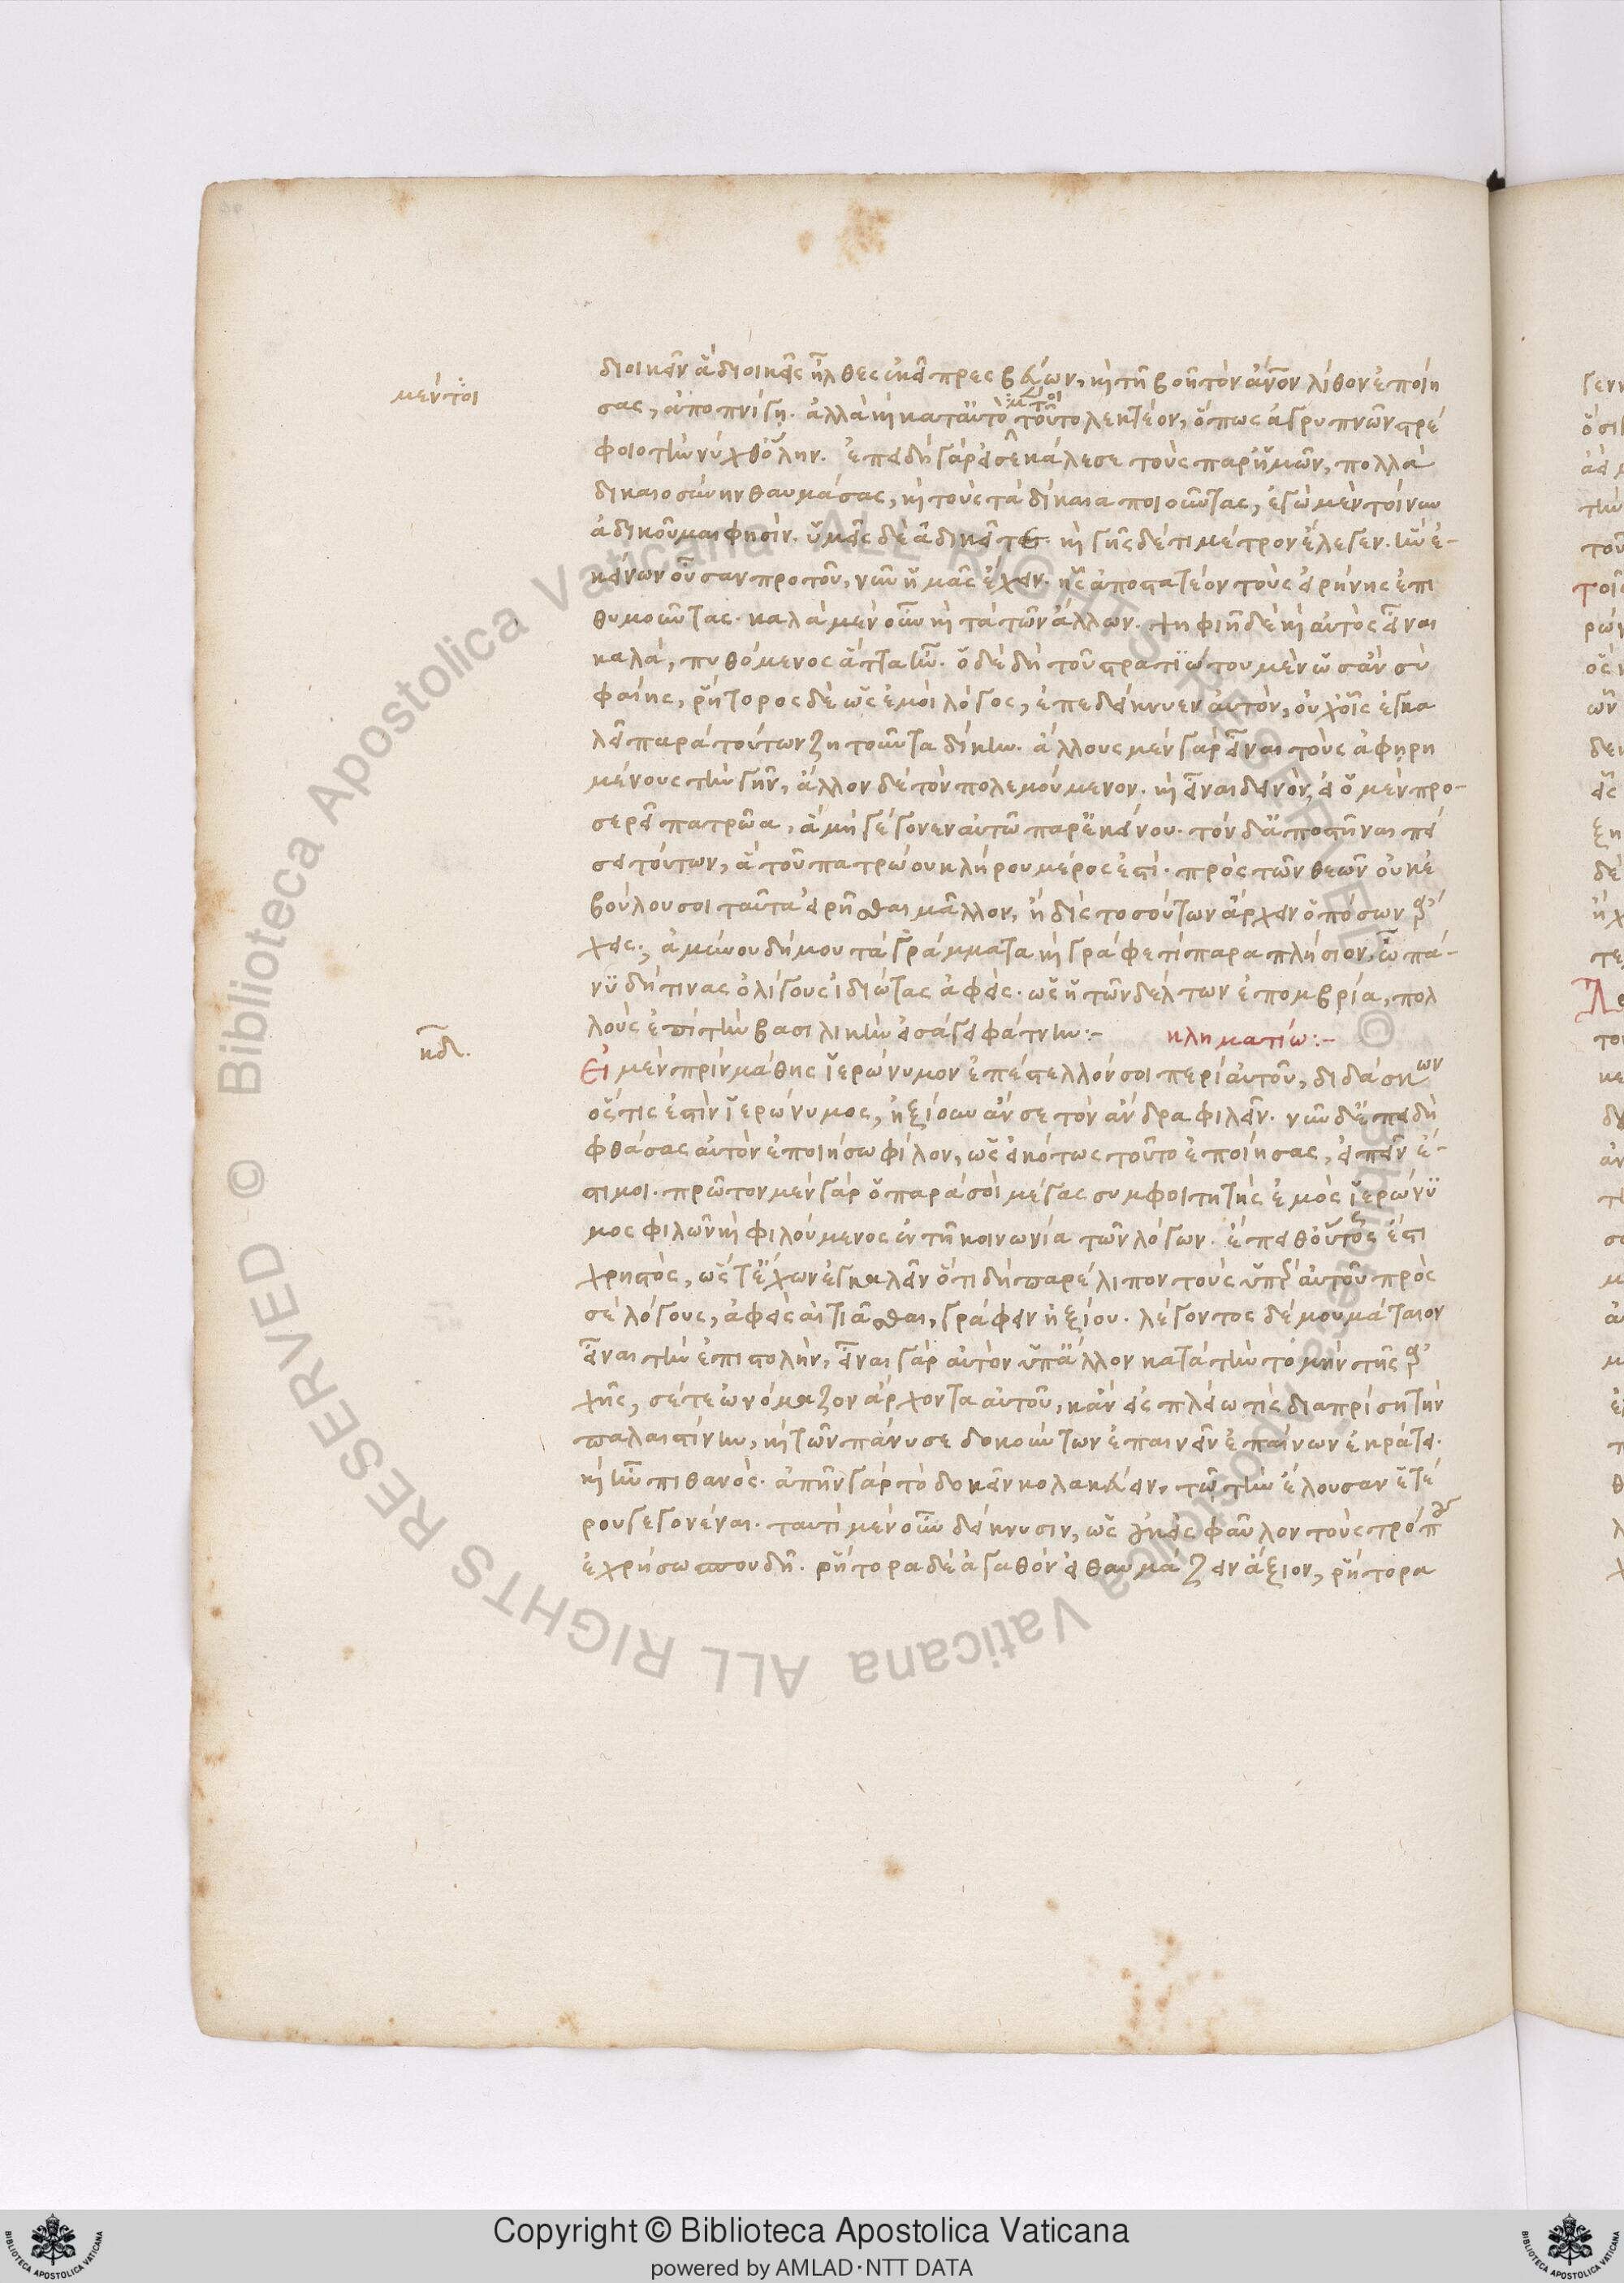 μέντοι
διοικεῖν ἃ διοικεῖς ἦλθες ἐκεῖ πρεσβεύων, καὶ τῇ βοῇ τὸν ἄνον λίθον ἐποίη
σας, ἀποπνίγῃ. ἀλλὰ καὶ κατ' αὐτὸ μέντοι τοῦτο λεκτέον, ὅπως ἀγρυπνῶν τρέ
φοιο τὴν νύχθ' ὅλην. ἐπειδὴ γὰρ εἰσεκάλεσε τοὺς παρ' ἡμῶν, πολλὰ
δικαιοσύνην θαυμάσας, καὶ τοὺς τὰ δίκαια ποιοῦντας, ἐγὼ μὲν τοίνυν
ἀδικοῦμαι φησίν. ὑμεῖς δὲ ἀδικεῖτε. καὶ γῆς δέ τι μέτρον ἔλεγεν. ἣν ἐ-
κείνων οὖσαν προτοῦ, νῦν ἡμᾶς ἔχειν. ἧς ἀποστατέον τοὺς εἰρήνης ἐπι
θυμοῦντας. καλὰ μὲν οὖν καὶ τὰ τῶν ἄλλων. ψηφιῇ δὲ καὶ αὐτὸς εἶναι
καλά, πυθόμενος ἅττα ἦν. ὁ δὲ δὴ τοῦ στρατϊώτου μὲν ὡς ἂν σὺ
φαίης, ῥήτορος δὲ ὡς ἐμοὶ λόγος, ἐπεδείκνυεν αὐτὸν, οὐχ οἷς ἐγκα
λεῖ παρὰ τούτων ζητοῦντα δίκην. ἄλλους μὲν γὰρ εἶναι τοὺς ἀφῃρη
μένους τὴν γῆν, ἄλλον δὲ τὸν πολεμούμενον. καὶ εἶναι δεινὸν, εἰ ὁ μὲν προ-
σερεῖ πατρῶα, ἃ μὴ γέγονεν αὐτῷ παρ' ἐκείνου. τὸν δ' ἀποστῆναι πεί
σει τούτων, ἃ τοῦ πατρώου κλήρου μέρος ἐστί. πρὸς τῶν θεῶν οὐκ ἐ
βούλου σοι ταῦτα εἰρῆσθαι μᾶλλον, ἢ δὶς τοσούτων ἄρχειν ὁπόσων ἄρ
χεις; ἀμείνου δή μου τὰ γράμματα καὶ γράφε τι παραπλήσιον. ἐῶ πά-
νϋ δή τινας ὀλίγους ἰδιώτας ἀφείς. ὡς ἡ τῶν δέλτων ἐπομβρία, πολ
λοὺς ἐπὶ τὴν βασιλικὴν εἰσάγει φάτνην:-
κληματίω:-
κδ.
Εἰ μὲν πρὶν μάθῃς ἱερώνυμον ἐπέστελλόν σοι περὶ αὐτοῦ, διδάσκων
ὅστις ἐστὶν ἱερώνυμος, ἠξίουν ἄν σε τὸν ἄνδρα φιλεῖν. νῦν δ' ἐπειδὴ
φθάσας αὐτὸν ἐποιήσω φίλον, ὡς εἰκότως τοῦτο ἐποίησας, εἰπεῖν ἔ-
στι μοι. πρῶτον μὲν γὰρ ὁ παρὰ σοὶ μέγας συμφοιτητὴς ἐμὸς ἱερώνϋ
μος φιλῶν καὶ φιλούμενος ἐν τῇ κοινωνία τῶν λόγων. ἔπειθ' οὕτως ἐστὶ
χρηστὸς, ὥστ' ἔχων ἐγκαλεῖν ὅτι δὴ παρέλιπον τοὺς ὑπὲρ αὐτοῦ πρὸς
σὲ λόγους, ἀφεὶς αἰτιᾶσθαι, γράφειν ἠξίου. λέγοντος δέ μου μάταιον
εἶναι τὴν ἐπιστολὴν, εἶναι γὰρ αὐτὸν ὑπ' ἄλλον κατὰ τὴν τομὴν τῆς ἀρ
χῆς, σέ τε ὠνόμαζον ἄρχοντα αὐτοῦ, κἂν εἰς πλείω τίς διαπρίσῃ τὴν
παλαιστίνην, καὶ τῶν πάνυ σε δοκούντων ἐπαινεῖν ἐπαίνων ἐκράτει.
καὶ ἦν πιθανός. ἀπῆν γὰρ τὸ δοκεῖν κολακεύειν, τῷ τὴν ἕλουσαν ἑτέ
ρου γεγονέναι. ταυτὶ μὲν οὖν δείκνυσιν, ὡς ἐπιεικεῖς φαῦλον τοὺς τρόπους
ἐχρήσω σπουδῇ. ῥήτορα δὲ ἀγαθὸν εἰ θαυμάζειν ἄξιον, ῥήτορα
Copyright © Biblioteca Apostolica Vaticana
powered by AMLAD·NTT DATA